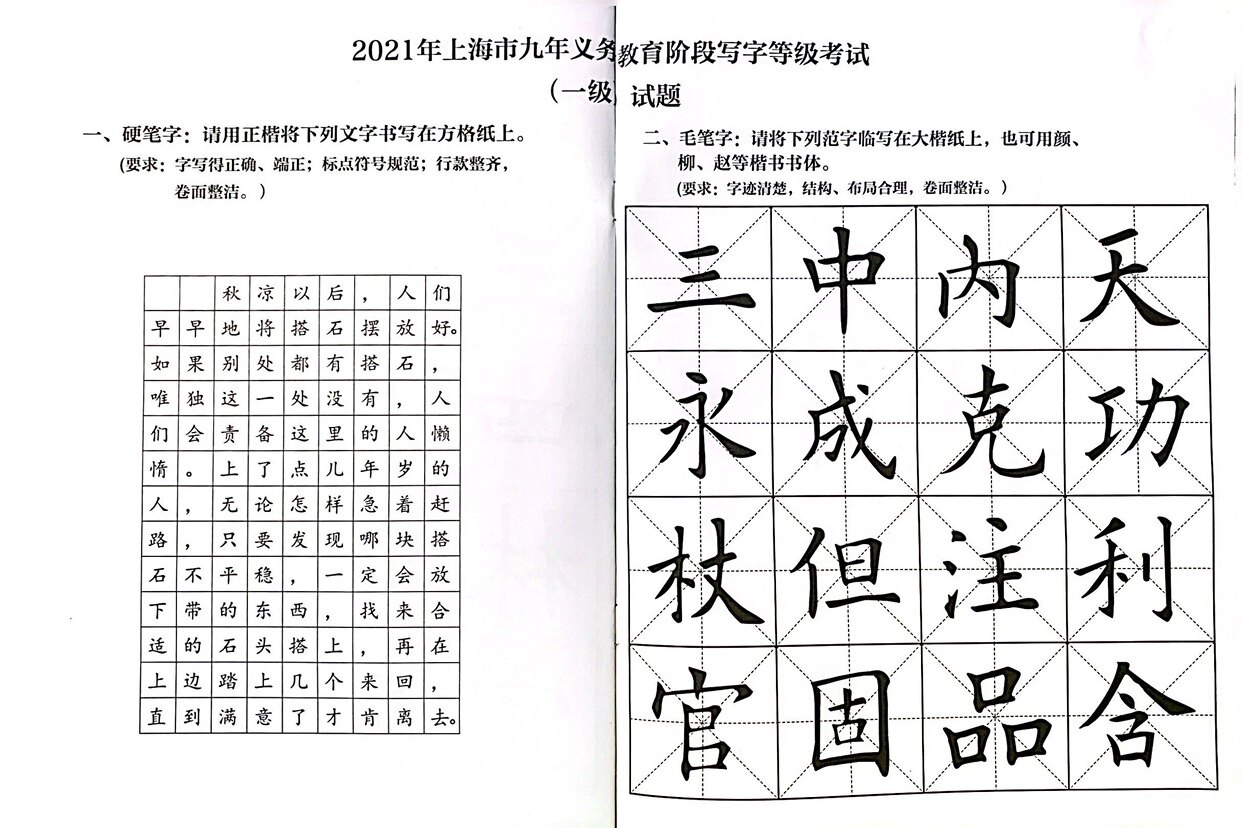 2021年上海市九年义务教育阶段写字等级考试
（一级）试题
一、硬笔字：请用正楷将下列文字书写在方格纸上。
（要求：字写得正确、端正；标点符号规范；行款整齐，
卷面整洁。）
秋凉以后，人们
早早地将搭石摆放好。
如果别处都有搭石，
唯独这一处没有，人
们会责备这里的人懒
惰。上了点儿年岁的
人，无论怎样急着赶
路，只要发现哪块搭
石不平稳，一定会放
下带的东西，找来合
适的石头搭上，再在
上边踏上几个来回，
直到满意了才肯离去。
二、毛笔字：请将下列范字临写在大楷纸上，也可用颜、
柳、赵等楷书书体。
（要求：字迹清楚，结构、布局合理，卷面整洁。）
三中内天
永成克功
杖但注利
官固品含